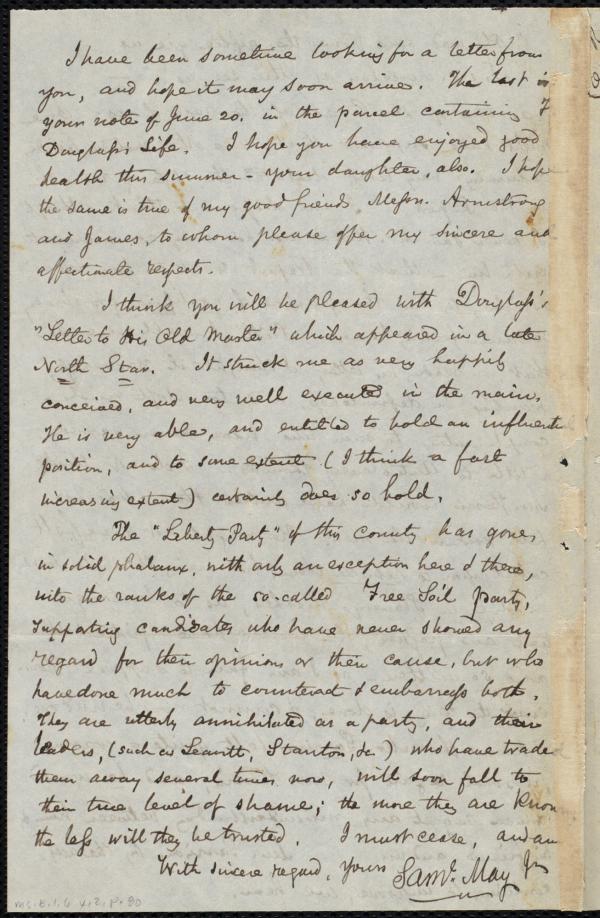 I have been sometime looking for a letter from
you, and hope it may soon arrive. The last is
your note of June 20. in the parcel containing F
Douglass's Life. I hope you have enjoyed good
health this summer - your daughter, also. I hope
the same is true of my good friends Messrs. Armstrong
and James, to whom please offer my sincere and
affectionate respects.
I think you will be pleased with Douglass's
"Letter to His Old Master" which appeared in a late
North Star. It struck me as very happily
conceived, and very well executed in the main.
He is very able, and entitled to hold an influential
position, and to some extent (I think a fast
increasing extent) certainly does so hold.
The "Liberty Party" of this county has gone,
in solid phalanx, with only an exception here & there,
into the ranks of the so-called Free Soil party,
supporting candidates who have never showed any
regard for their opinions or their cause, but who
have done much to counteract & embarrass both.
They are utterly annihilated as a party, and their
leaders, (such as Leavitt, Stanton, &c) who have traded
them away several times now, will soon fall to
their true level of shame; the more they are known
the less will they be trusted. I must cease, and am
With sincere regard, yours Saml. May Jr